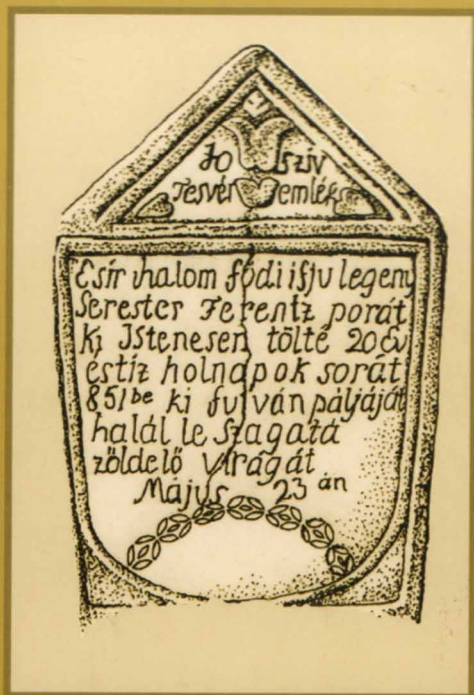 Jo sziv
Tesvér emlék
E sír halom fődi ifju legeny
Serester Ferentz porát
ki Istenesen tölté 20 év
éstiz holnapok sorát
851 be ki fu ván pályáját
halál le szagatá
zöldelő virágát
Május 23 án